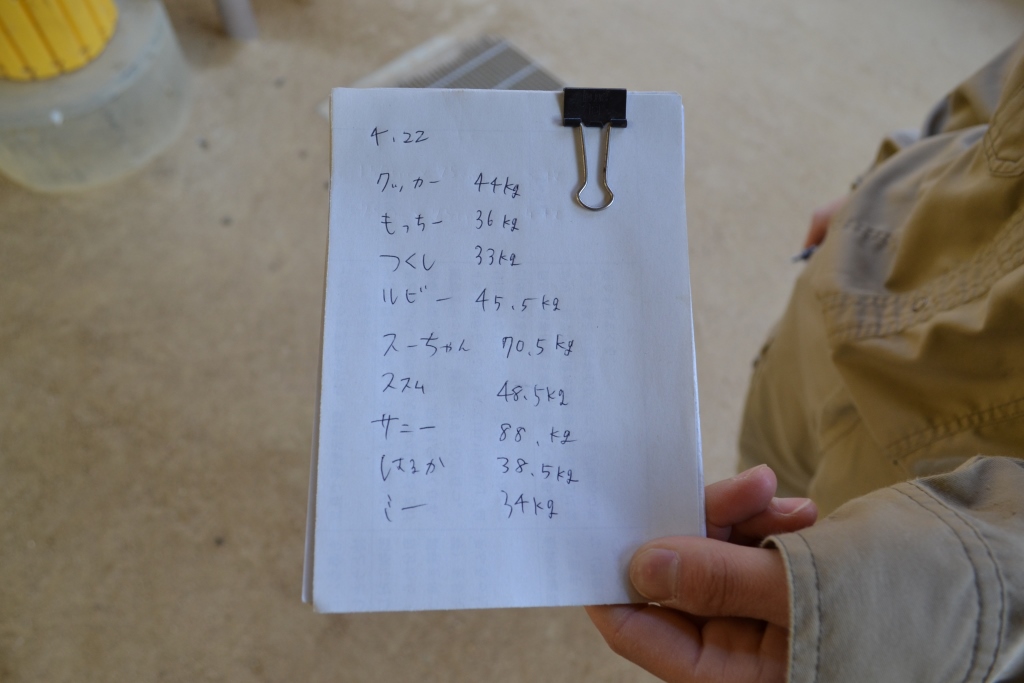 4.22
クッカー 44kg
もっちー 36kg
つくし 33kg
ルビー 45.5kg
スーちゃん 70.5kg
ススム 48.5kg
サニー 88.kg
はるか 38.5kg
ミー 34kg